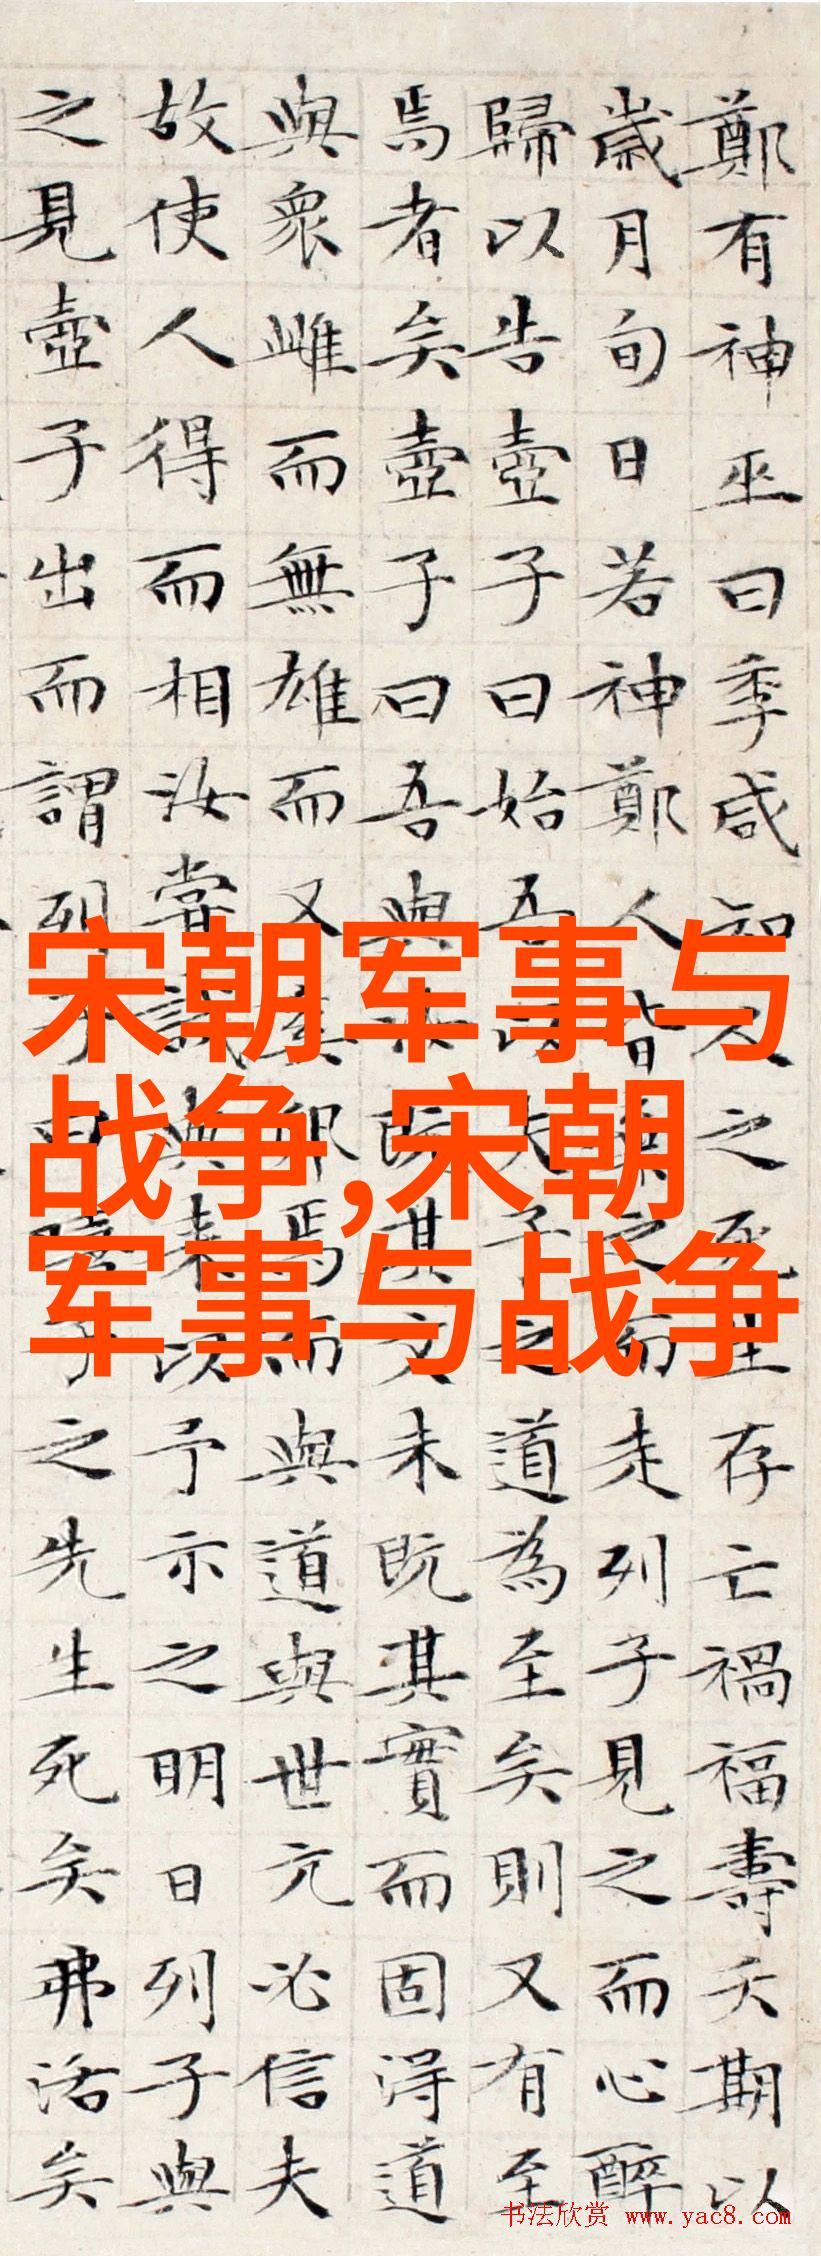 鄭有神巫曰季咸知人之死生存亡禍福壽夭期以
歲月旬日若神鄭人皆棄之而走列子見之而心醉
歸以告壺子曰始吾以夫子之道為至矣則又有至
焉者矣壺子曰吾與汝既其文未既其實而固得道
與衆雌而無雄而又奚卵焉而與道與世亢必信夫
故使人得而相汝嘗試與來以予示之明日列子與
之見壺子出而謂列子曰嘻子之先生死矣弗活矣
宋朝军事与
战争,宋朝
军事与战争
书法欣赏 www.yac8.com